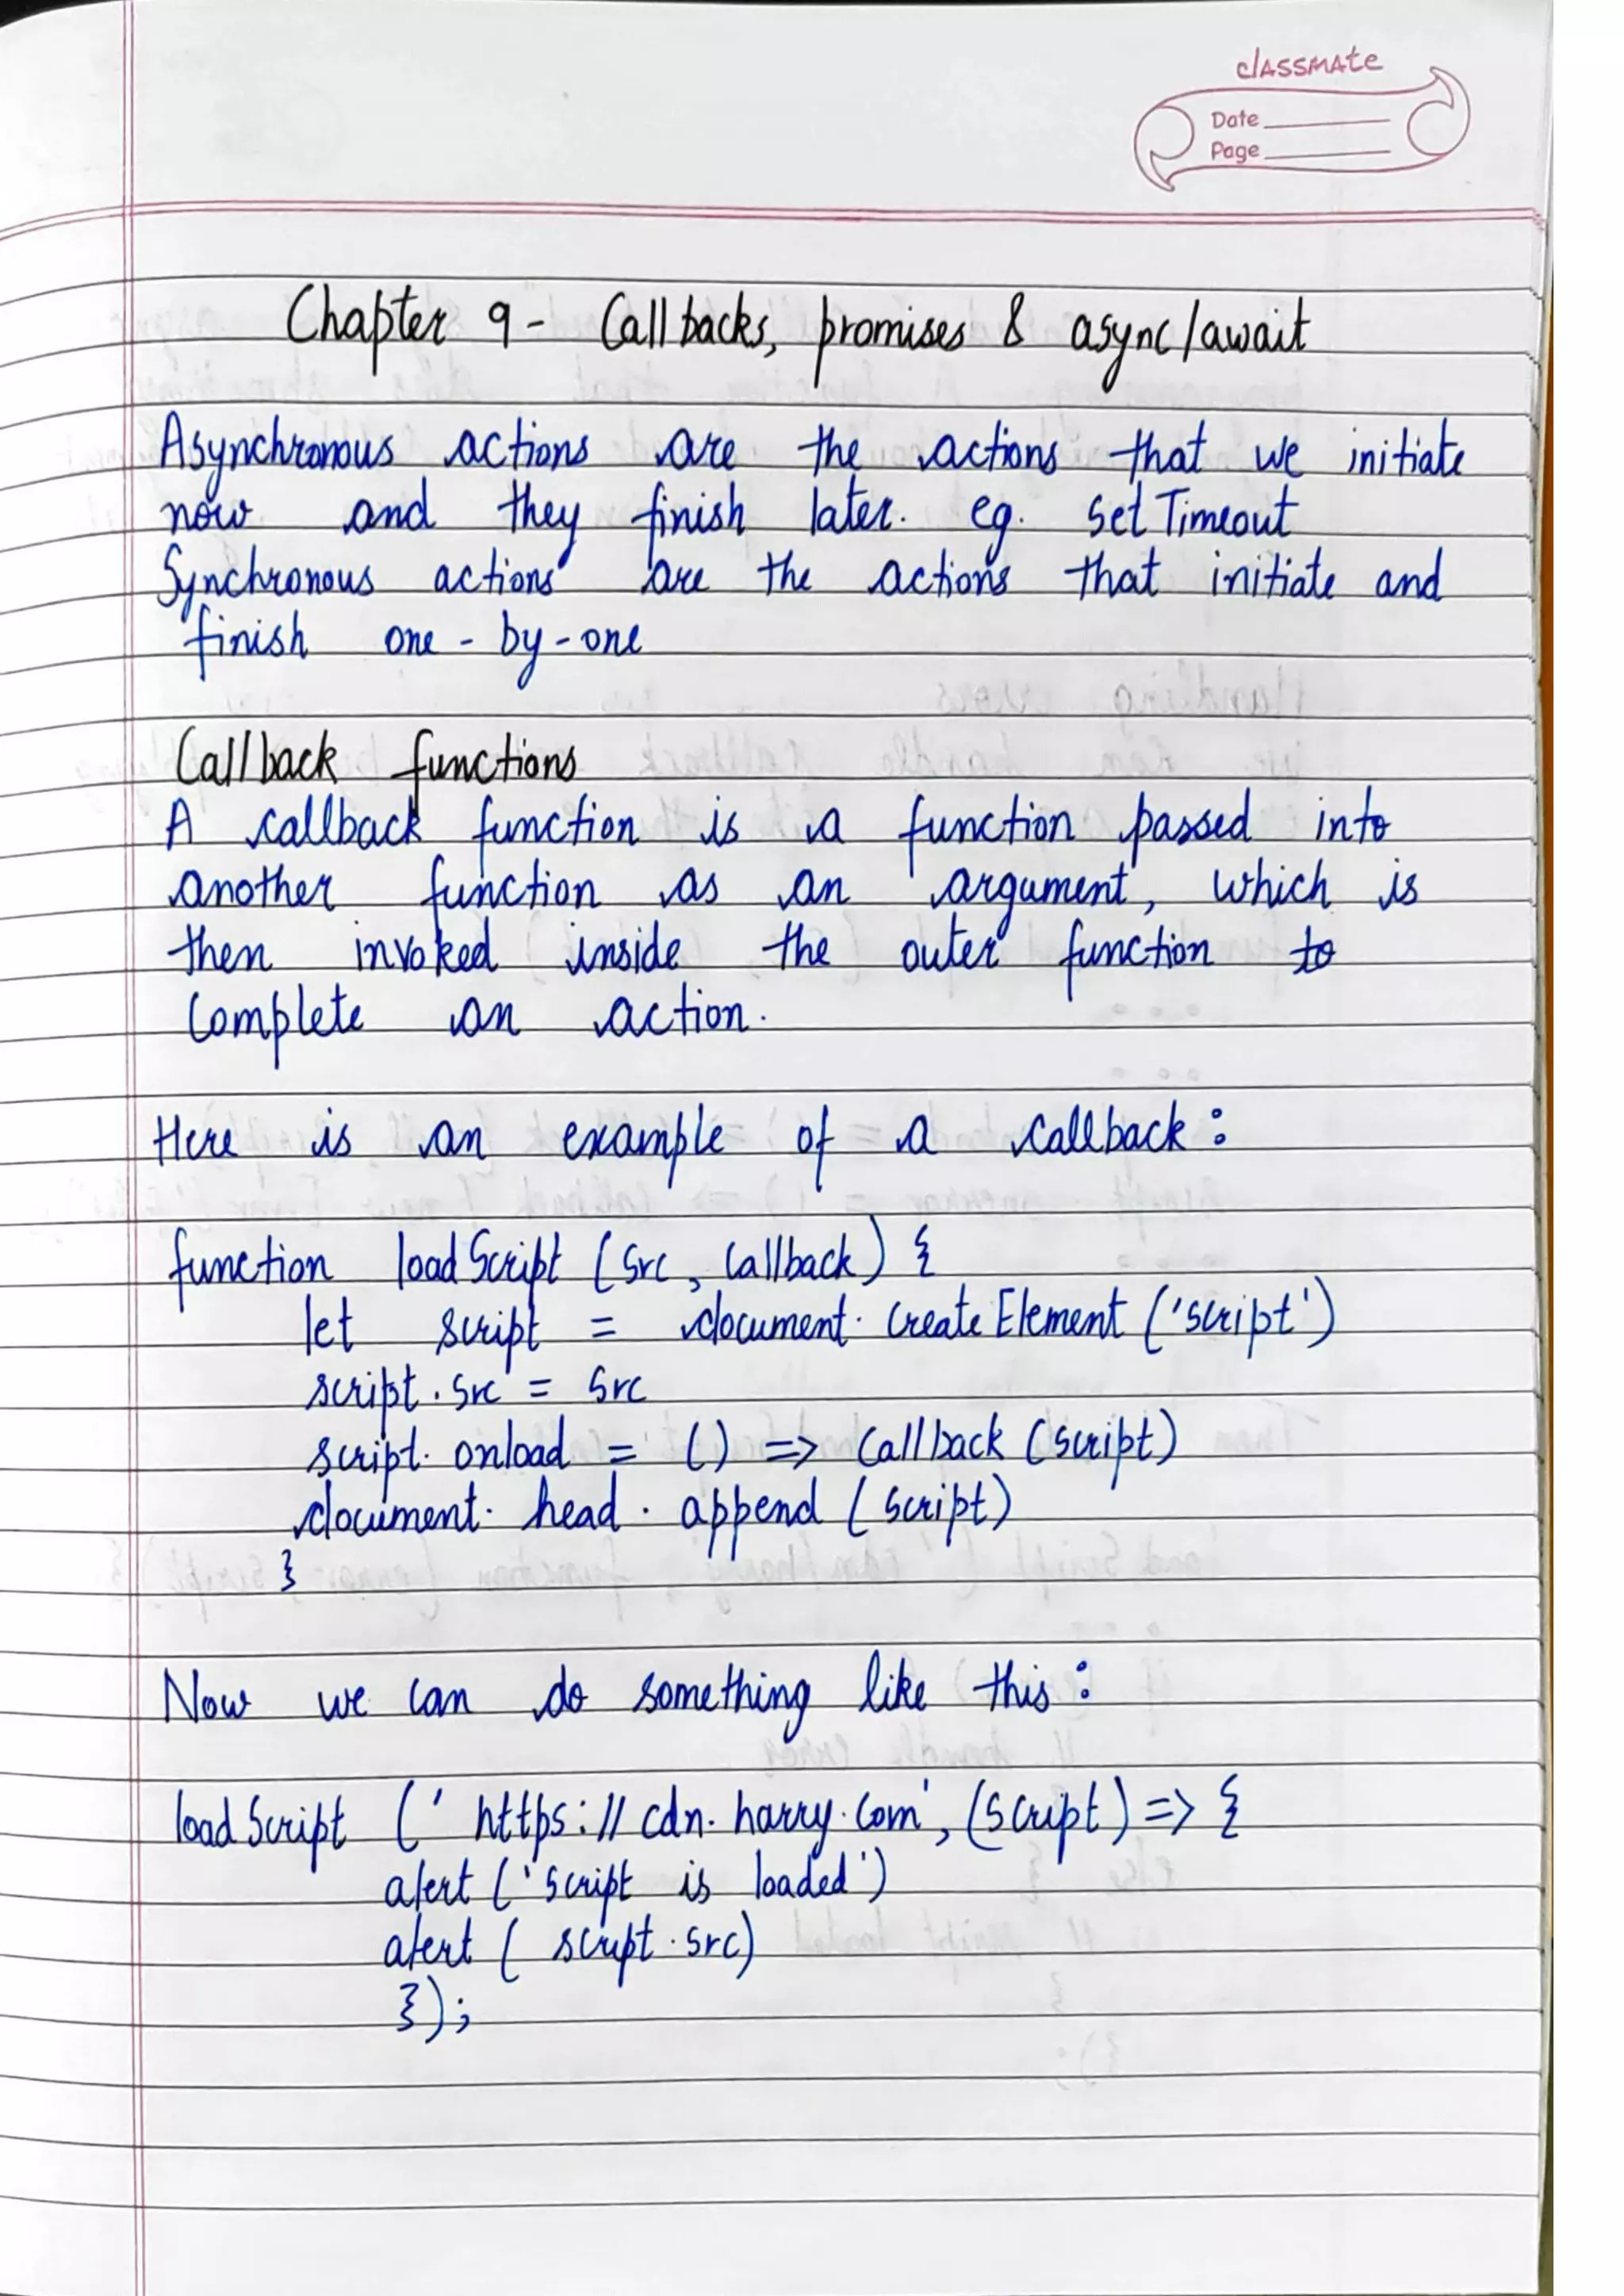 classmate
Date
Page
Chapter 9 - Callbacks, promises & async/await
Asynchronous actions are the actions that we initiate
now and they finish later. eg. setTimeout
Synchronous actions are the actions that initiate and
finish one-by-one
Callback functions
A callback function is a function passed into
another function as an argument, which is
then invoked inside the outer function to
complete an action.
Here is an example of a callback:
function loadScript (src, callback) {
let script = document.createElement ('script')
script.src = src
script.onload = () => callback (script)
document.head.append (script)
}
Now we can do something like this:
loadScript ('https://cdn.harry.com', (script) => {
alert ('script is loaded')
alert (script.src)
});